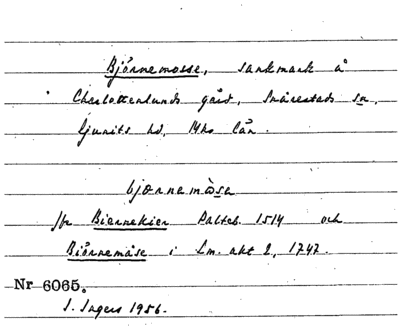 Björnemosse, sankmark å
Charlottenlunds gård, Snårestads sn,
Ljunits hd, Mhs län.
bjœrnemåsa
jfr Biernekier Palteb. 1514 och
Biörnemåse i Lm. akt 2, 1747.
Nr 6065.
I. Ingers 1956.